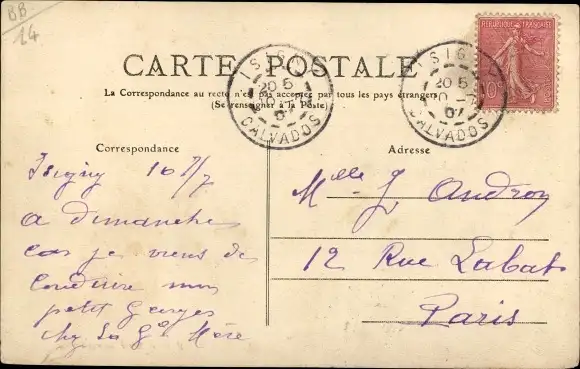 BB
14
CARTE POSTALE
La Correspondance au recto n'est pas acceptée par tous les pays étrangers
(Se renseigner à la Poste)
RÉPUBLIQUE FRANÇAISE
10
ISIGNY
20 5
10 - 7
07
CALVADOS
ISIGNY
20 5
10 - 7
07
CALVADOS
Correspondance
Isigny 10 7/7
a dimanche
car je viens de
conduire mon
petit Georges
chez sa Gd Mère
Adresse
Mlle J. Andron
12 Rue Labat
Paris